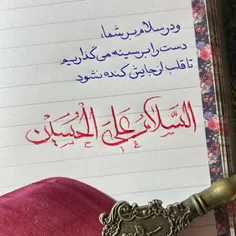 و در سلام بر شما،
دست را بر سینه می‌گذاریم
تا قلب از جایش کنده نشود
السَّلامُ عَلَی الحُسَین